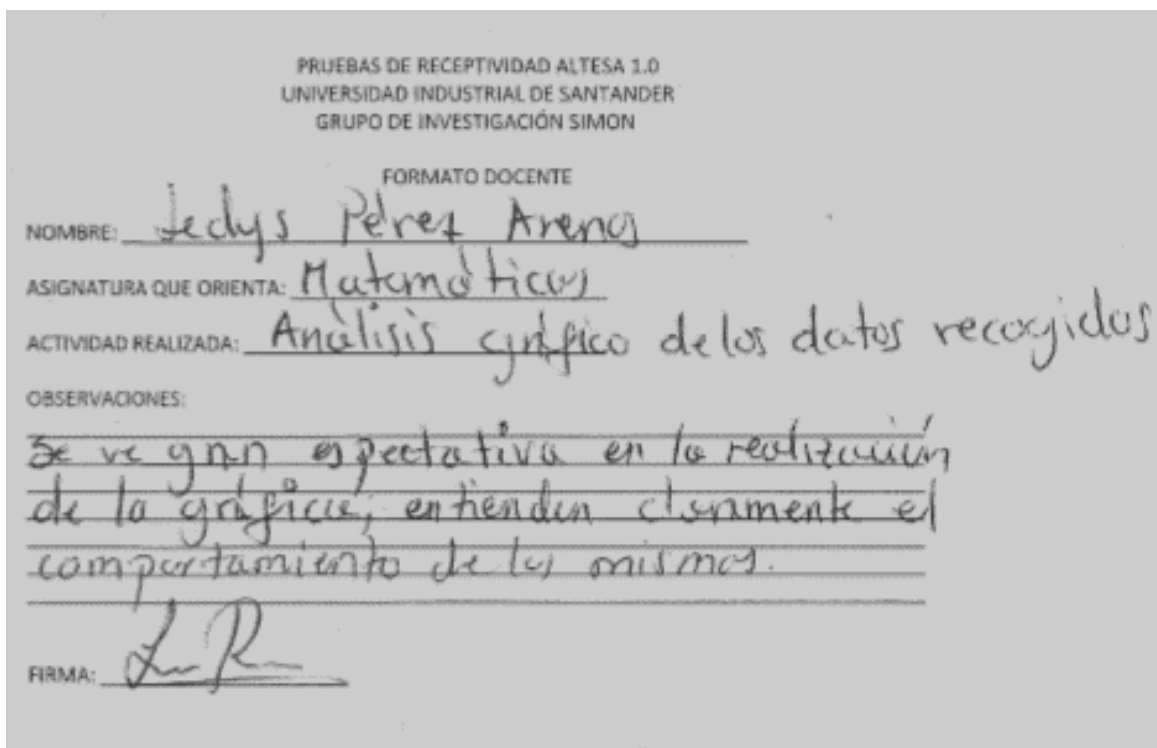 PRUEBAS DE RECEPTIVIDAD ALTESA 1.0
UNIVERSIDAD INDUSTRIAL DE SANTANDER
GRUPO DE INVESTIGACIÓN SIMON
FORMATO DOCENTE
NOMBRE: Ledys Pérez Arenas
ASIGNATURA QUE ORIENTA: Matemáticas
ACTIVIDAD REALIZADA: Análisis gráfico de los datos recogidos
OBSERVACIONES:
Se ve gran espectativa en la realización
de la gráfica, entienden claramente el
comportamiento de las mismas.
FIRMA: